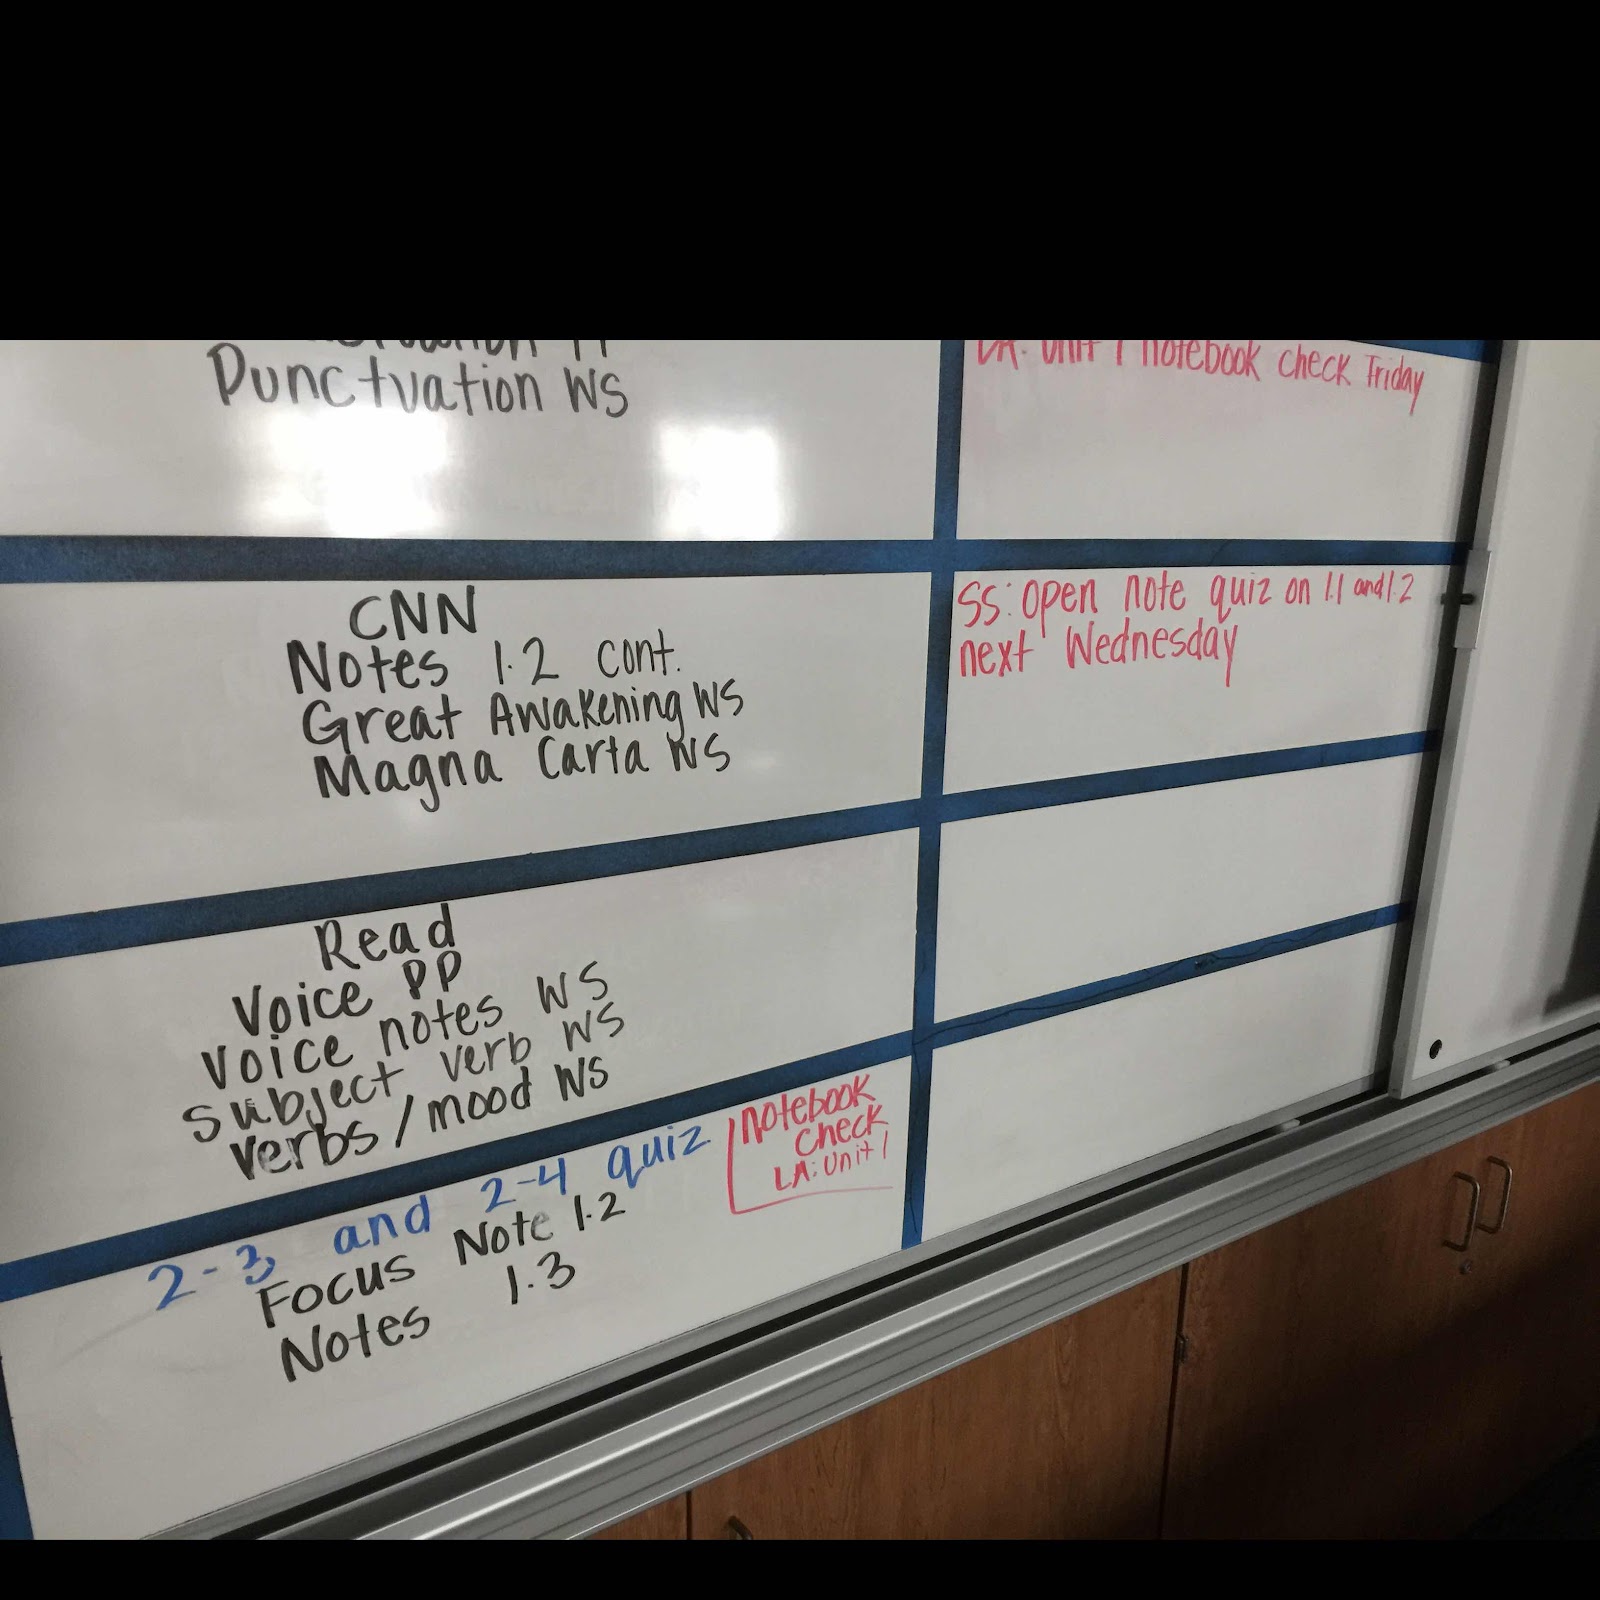 Punctuation WS
LA: Unit 1 notebook check Friday
CNN
Notes 1.2 cont.
Great Awakening WS
Magna Carta WS
SS: open note quiz on 1.1 and 1.2
next Wednesday
Read
Voice PP
Voice notes WS
subject verb WS
verbs/mood WS
2-3 and 2-4 quiz
Focus Note 1.2
Notes 1.3
notebook
check
LA: Unit 1